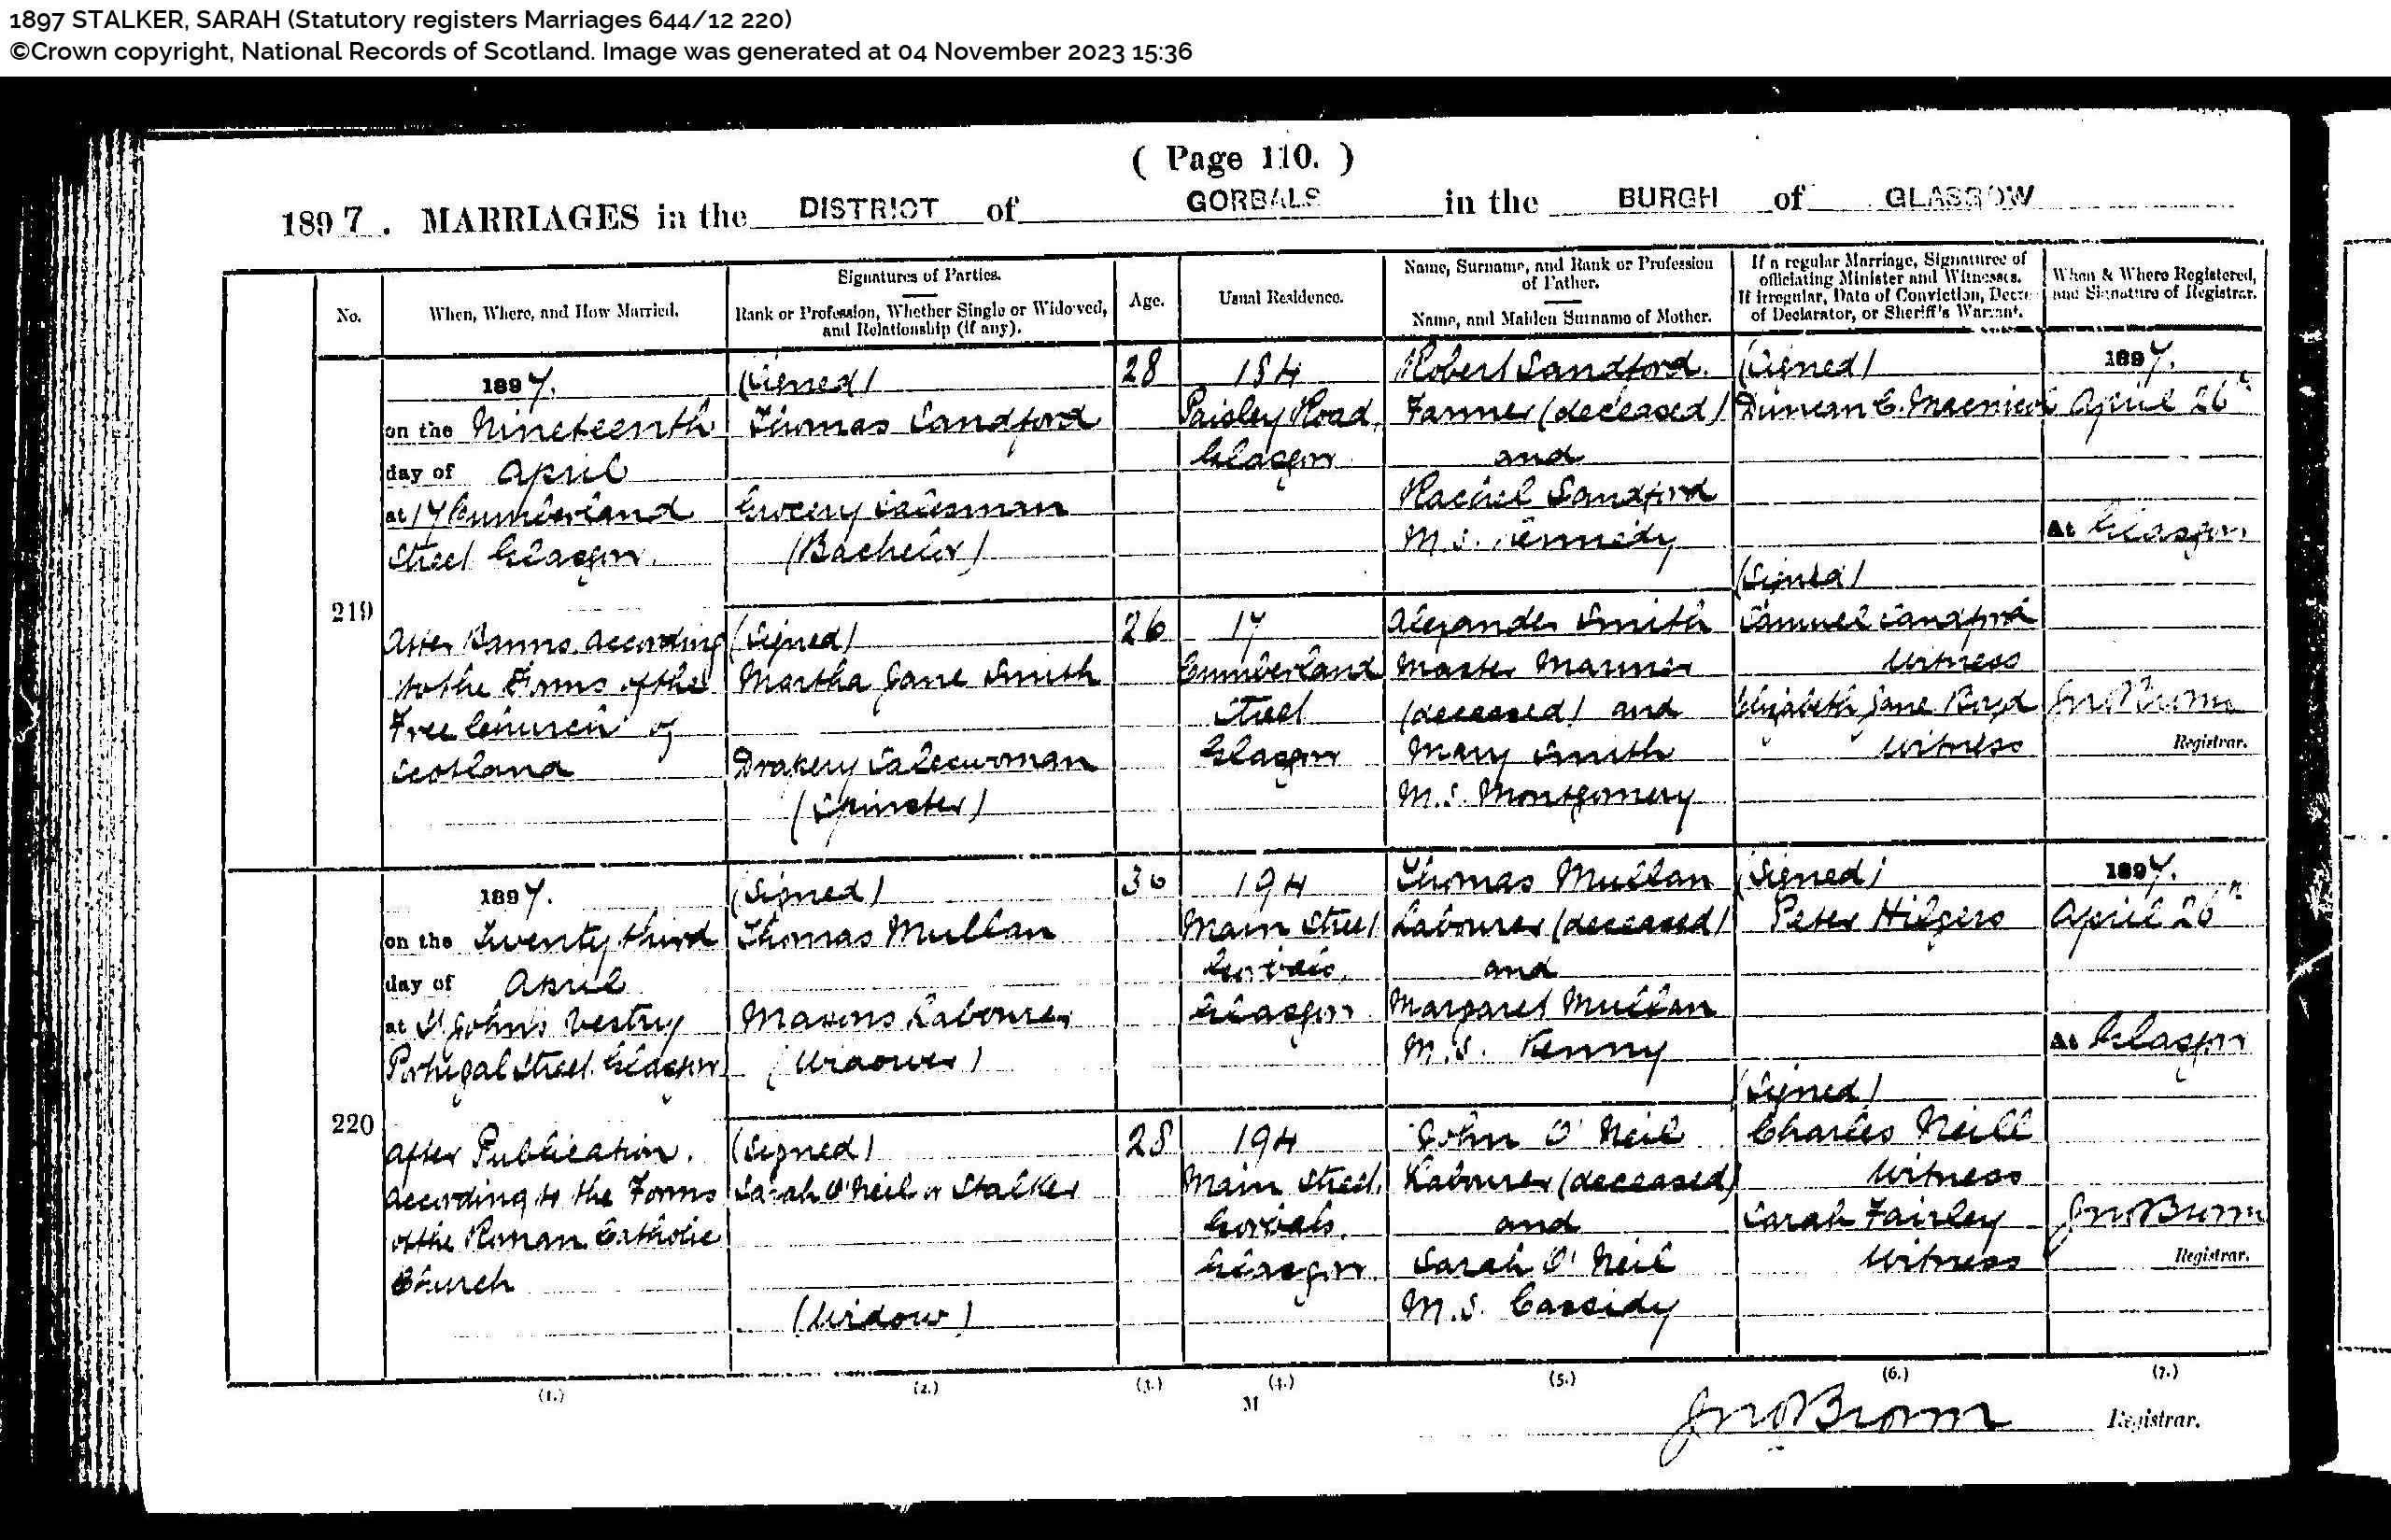 1897 STALKER, SARAH (Statutory registers Marriages 644/12 220)
©Crown copyright, National Records of Scotland. Image was generated at 04 November 2023 15:36
( Page 110. )
1897. MARRIAGES in the DISTRICT of GORBALS in the BURGH of GLASGOW
No.
When, Where, and How Married.
Signatures of Parties.
Rank or Profession, Whether Single or Widowed,
and Relationship (if any).
Age.
Usual Residence.
Name, Surname, and Rank or Profession
of Father.
Name, and Maiden Surname of Mother.
If a regular Marriage, Signatures of
officiating Minister and Witnesses.
If irregular, Date of Conviction, Decree
of Declarator, or Sheriff's Warrant.
When & Where Registered,
and Signature of Registrar.
219
1897.
on the Nineteenth
day of April
at 17 Cumberland
Street Glasgow.
After Banns according
to the Forms of the
Free Church of
Scotland
(Signed)
Thomas Sandford
Grocery Salesman
(Bachelor)
28
184
Paisley Road,
Glasgow
Robert Sandford.
Farmer (deceased)
and
Rachel Sandford
M.S. Kennedy
(Signed)
Martha Jane Smith
Drapery Saleswoman
(Spinster)
26
17
Cumberland
Street
Glasgow
Alexander Smith
Master Mariner
(deceased) and
Mary Smith
M.S. Montgomery
(Signed)
Duncan C. Macnicol
(Signed)
Samuel Sandford
Witness
Elizabeth Jane Boyd
Witness
1897.
April 26th
At Glasgow
Jno Brown
Registrar.
220
1897.
on the Twenty third
day of April
at St John's Vestry
Portugal Street Glasgow
After Publication.
According to the Forms
of the Roman Catholic
Church
(Signed)
Thomas Mullan
Masons Labourer
(Widower)
36
194
Main Street
Gorbals,
Glasgow
Thomas Mullan
Labourer (deceased)
and
Margaret Mullan
M.S. Kenny
(Signed)
Sarah O'Neil or Stalker
(Widow)
28
194
Main Street,
Gorbals.
Glasgow.
John O'Neil
Labourer (deceased)
and
Sarah O'Neil
M.S. Cassidy
(Signed)
Peter Hilgers
(Signed)
Charles Neill
Witness
Sarah Fairley
Witness
1897.
April 26th
At Glasgow
Jno Brown
Registrar.
(1.) (2.) (3.) (4.) (5.) (6.) (7.)
M
Jno Brown Registrar.